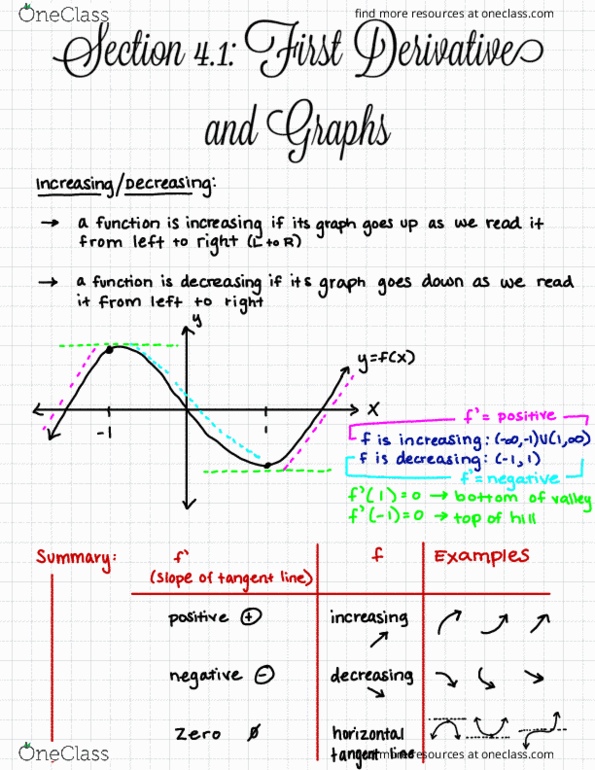 OneClass
find more resources at oneclass.com
Section 4.1: First Derivative
and Graphs
Increasing/Decreasing:
→ a function is increasing if its graph goes up as we read it
from left to right (L to R)
→ a function is decreasing if its graph goes down as we read
it from left to right
y
y=f(x)
x
-1
1
f' = positive
f is increasing: (-∞,-1)U(1,∞)
f is decreasing: (-1,1)
f' = negative
f'(1)=0 → bottom of valley
f'(-1)=0 → top of hill
Summary:
f'
(slope of tangent line)
f
Examples
positive +
increasing
negative -
decreasing
zero ø
horizontal
tangent line
OneClass
resources at oneclass.com